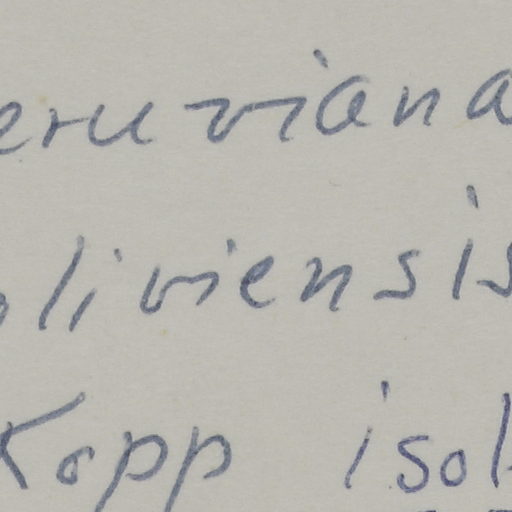 eruviana
oliviensis
Kopp isol